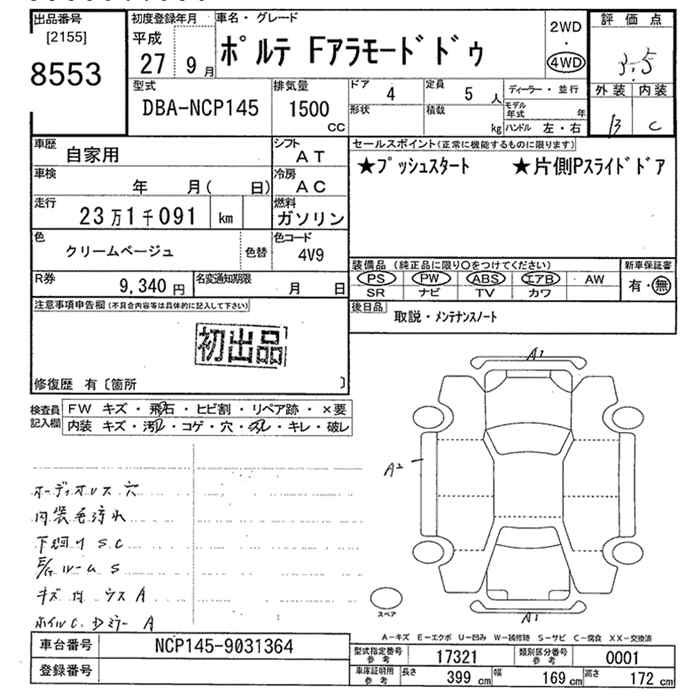 出品番号
[2155]
8553
初度登録年月
平成
27 9月
車名・グレード
ポルテ Fアラモードドゥ
2WD
・
4WD
評価点
3.5
外装 内装
B C
型式
DBA-NCP145
排気量
1500
CC
ドア
4
定員
5人
形状
積載
kg
ディーラー・並行
モデル年式 年
ハンドル 左・右
車歴
自家用
シフト
AT
車検
年 月( 日)
冷房
AC
走行
23万1千091 km
燃料
ガソリン
色
クリームベージュ
色替
色コード
4V9
R券
9,340円
名変通知期限
月 日
セールスポイント(正常に機能するものに限ります)
★プッシュスタート ★片側Pスライドドア
装備品(純正品に限り○をつけてください)
PS PW ABS エアB AW
SR ナビ TV カワ
新車保証書
有・無
後日品
取説・メンテナンスノート
注意事項申告欄(不具合内容等は具体的に記入して下さい)
初出品
修復歴 有〔箇所 〕
検査員
記入欄
FW キズ・飛石・ヒビ割・リペア跡・×要
内装 キズ・汚れ・コゲ・穴・スレ・キレ・破レ
オーディオレス穴
内装毛汚れ
下廻り SC
E/gルーム S
キズ 凹 ウス A
ホイルC、Dミラー A
A1
A2
A1
スペア
A-キズ E-エクボ U-凹み W-補修跡 S-サビ C-腐食 XX-交換済
車台番号
NCP145-9031364
登録番号
型式指定番号
参考
17321
類別区分番号
参考
0001
車庫証明用
参考
長さ 399cm 幅 169cm 高さ 172cm